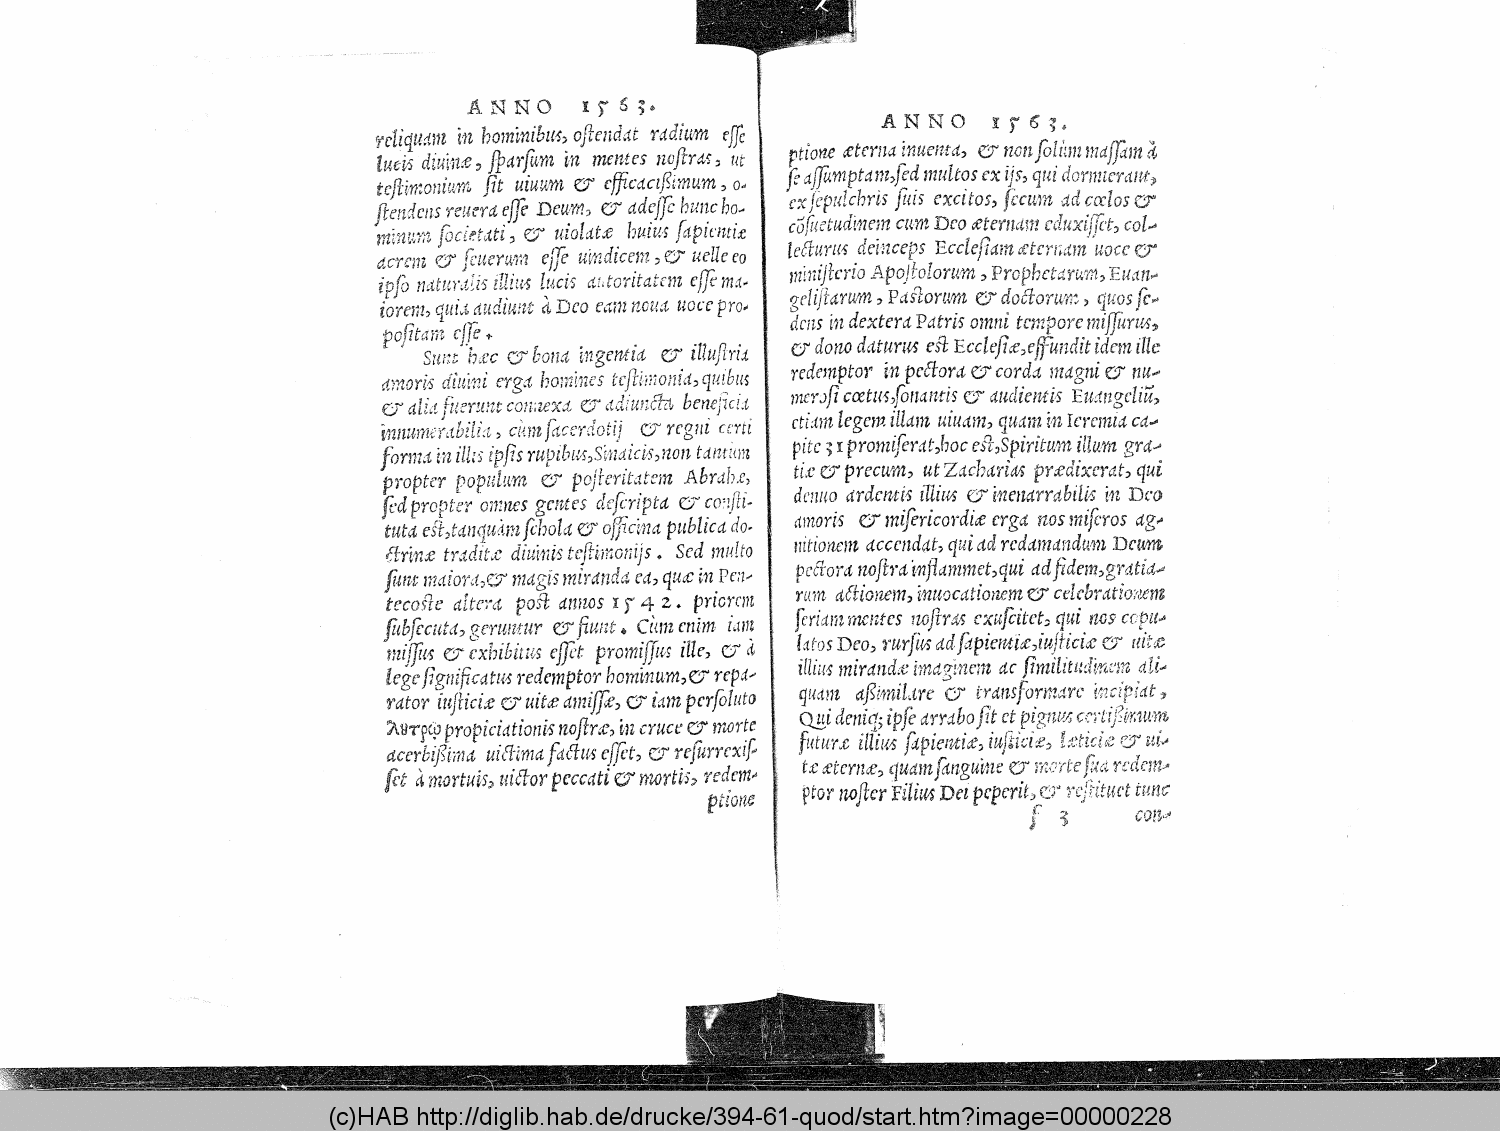 ANNO 1563.
reliquam in hominibus, oſtendat radium eſſe
lucis diuinæ, ſparſum in mentes noſtras, ut
teſtimonium ſit uiuum & efficacißimum, o-
ſtendens reuera eſſe Deum, & adeſſe hunc ho-
minum ſocietati, & uiolatæ huius ſapientiæ
acrem & ſeuerum eſſe uindicem, & uelle eo
ipſo naturalis illius lucis autoritatem eſſe ma-
iorem, quia audiunt à Deo eam noua uoce pro-
poſitam eſſe.
Sunt hæc & bona ingentia & illuſtria
amoris diuini erga homines teſtimonia, quibus
& alia fuerunt connexa & adiuncta beneficia
innumerabilia, cùm ſacerdotij & regni certi
forma in illis ipſis rupibus, Sinaicis, non tantùm
propter populum & poſteritatem Abrahæ,
ſed propter omnes gentes deſcripta & conſti-
tuta eſt, tanquàm ſchola & officina publica do-
ctrinæ traditæ diuinis teſtimonijs. Sed multo
ſunt maiora, & magis miranda ea, quæ in Pen-
tecoſte altera poſt annos 1542. priorem
ſubſecuta, geruntur & fiunt. Cùm enim iam
miſſus & exhibitus eſſet promiſſus ille, & à
lege ſignificatus redemptor hominum, & repa-
rator iuſticiæ & uitæ amiſſæ, & iam perſoluto
λυτρῳ propiciationis noſtræ, in cruce & morte
acerbißima uictima factus eſſet, & reſurrexiſ-
ſet à mortuis, uictor peccati & mortis, redem-
ptione
ANNO 1563.
ptione æterna inuenta, & non ſolùm maſſam à
ſe aſſumptam, ſed multos ex ijs, qui dormierant,
ex ſepulchris ſuis excitos, ſecum ad cœlos &
cōſuetudinem cum Deo æternam eduxiſſet, col-
lecturus deinceps Eccleſiam æternam uoce &
miniſterio Apoſtolorum, Prophetarum, Euan-
geliſtarum, Paſtorum & doctorum, quos ſe-
dens in dextera Patris omni tempore miſſurus,
& dono daturus eſt Eccleſiæ, effundit idem ille
redemptor in pectora & corda magni & nu-
meroſi cœtus, ſonantis & audientis Euangeliū,
etiam legem illam uiuam, quam in Ieremia ca-
pite 31 promiſerat, hoc eſt, Spiritum illum gra-
tiæ & precum, ut Zacharias prædixerat, qui
denuo ardentis illius & inenarrabilis in Deo
amoris & miſericordiæ erga nos miſeros ag-
nitionem accendat, qui ad redamandum Deum
pectora noſtra inflammet, qui ad fidem, gratia-
rum actionem, inuocationem & celebrationem
ſeriam mentes noſtras exuſcitet, qui nos copu-
latos Deo, rurſus ad ſapientiæ, iuſticiæ & uitæ
illius mirandæ imaginem ac ſimilitudinem ali-
quam aßimilare & transformare incipiat,
Qui deniq; ipſe arrabo ſit et pignus certißimum
futuræ illius ſapientiæ, iuſticiæ, læticiæ & ui-
tæ æternæ, quam ſanguine & morte ſua redem-
ptor noſter Filius Dei peperit, & reſtituet tunc
f 3 con-
(c)HAB http://diglib.hab.de/drucke/394-61-quod/start.htm?image=00000228